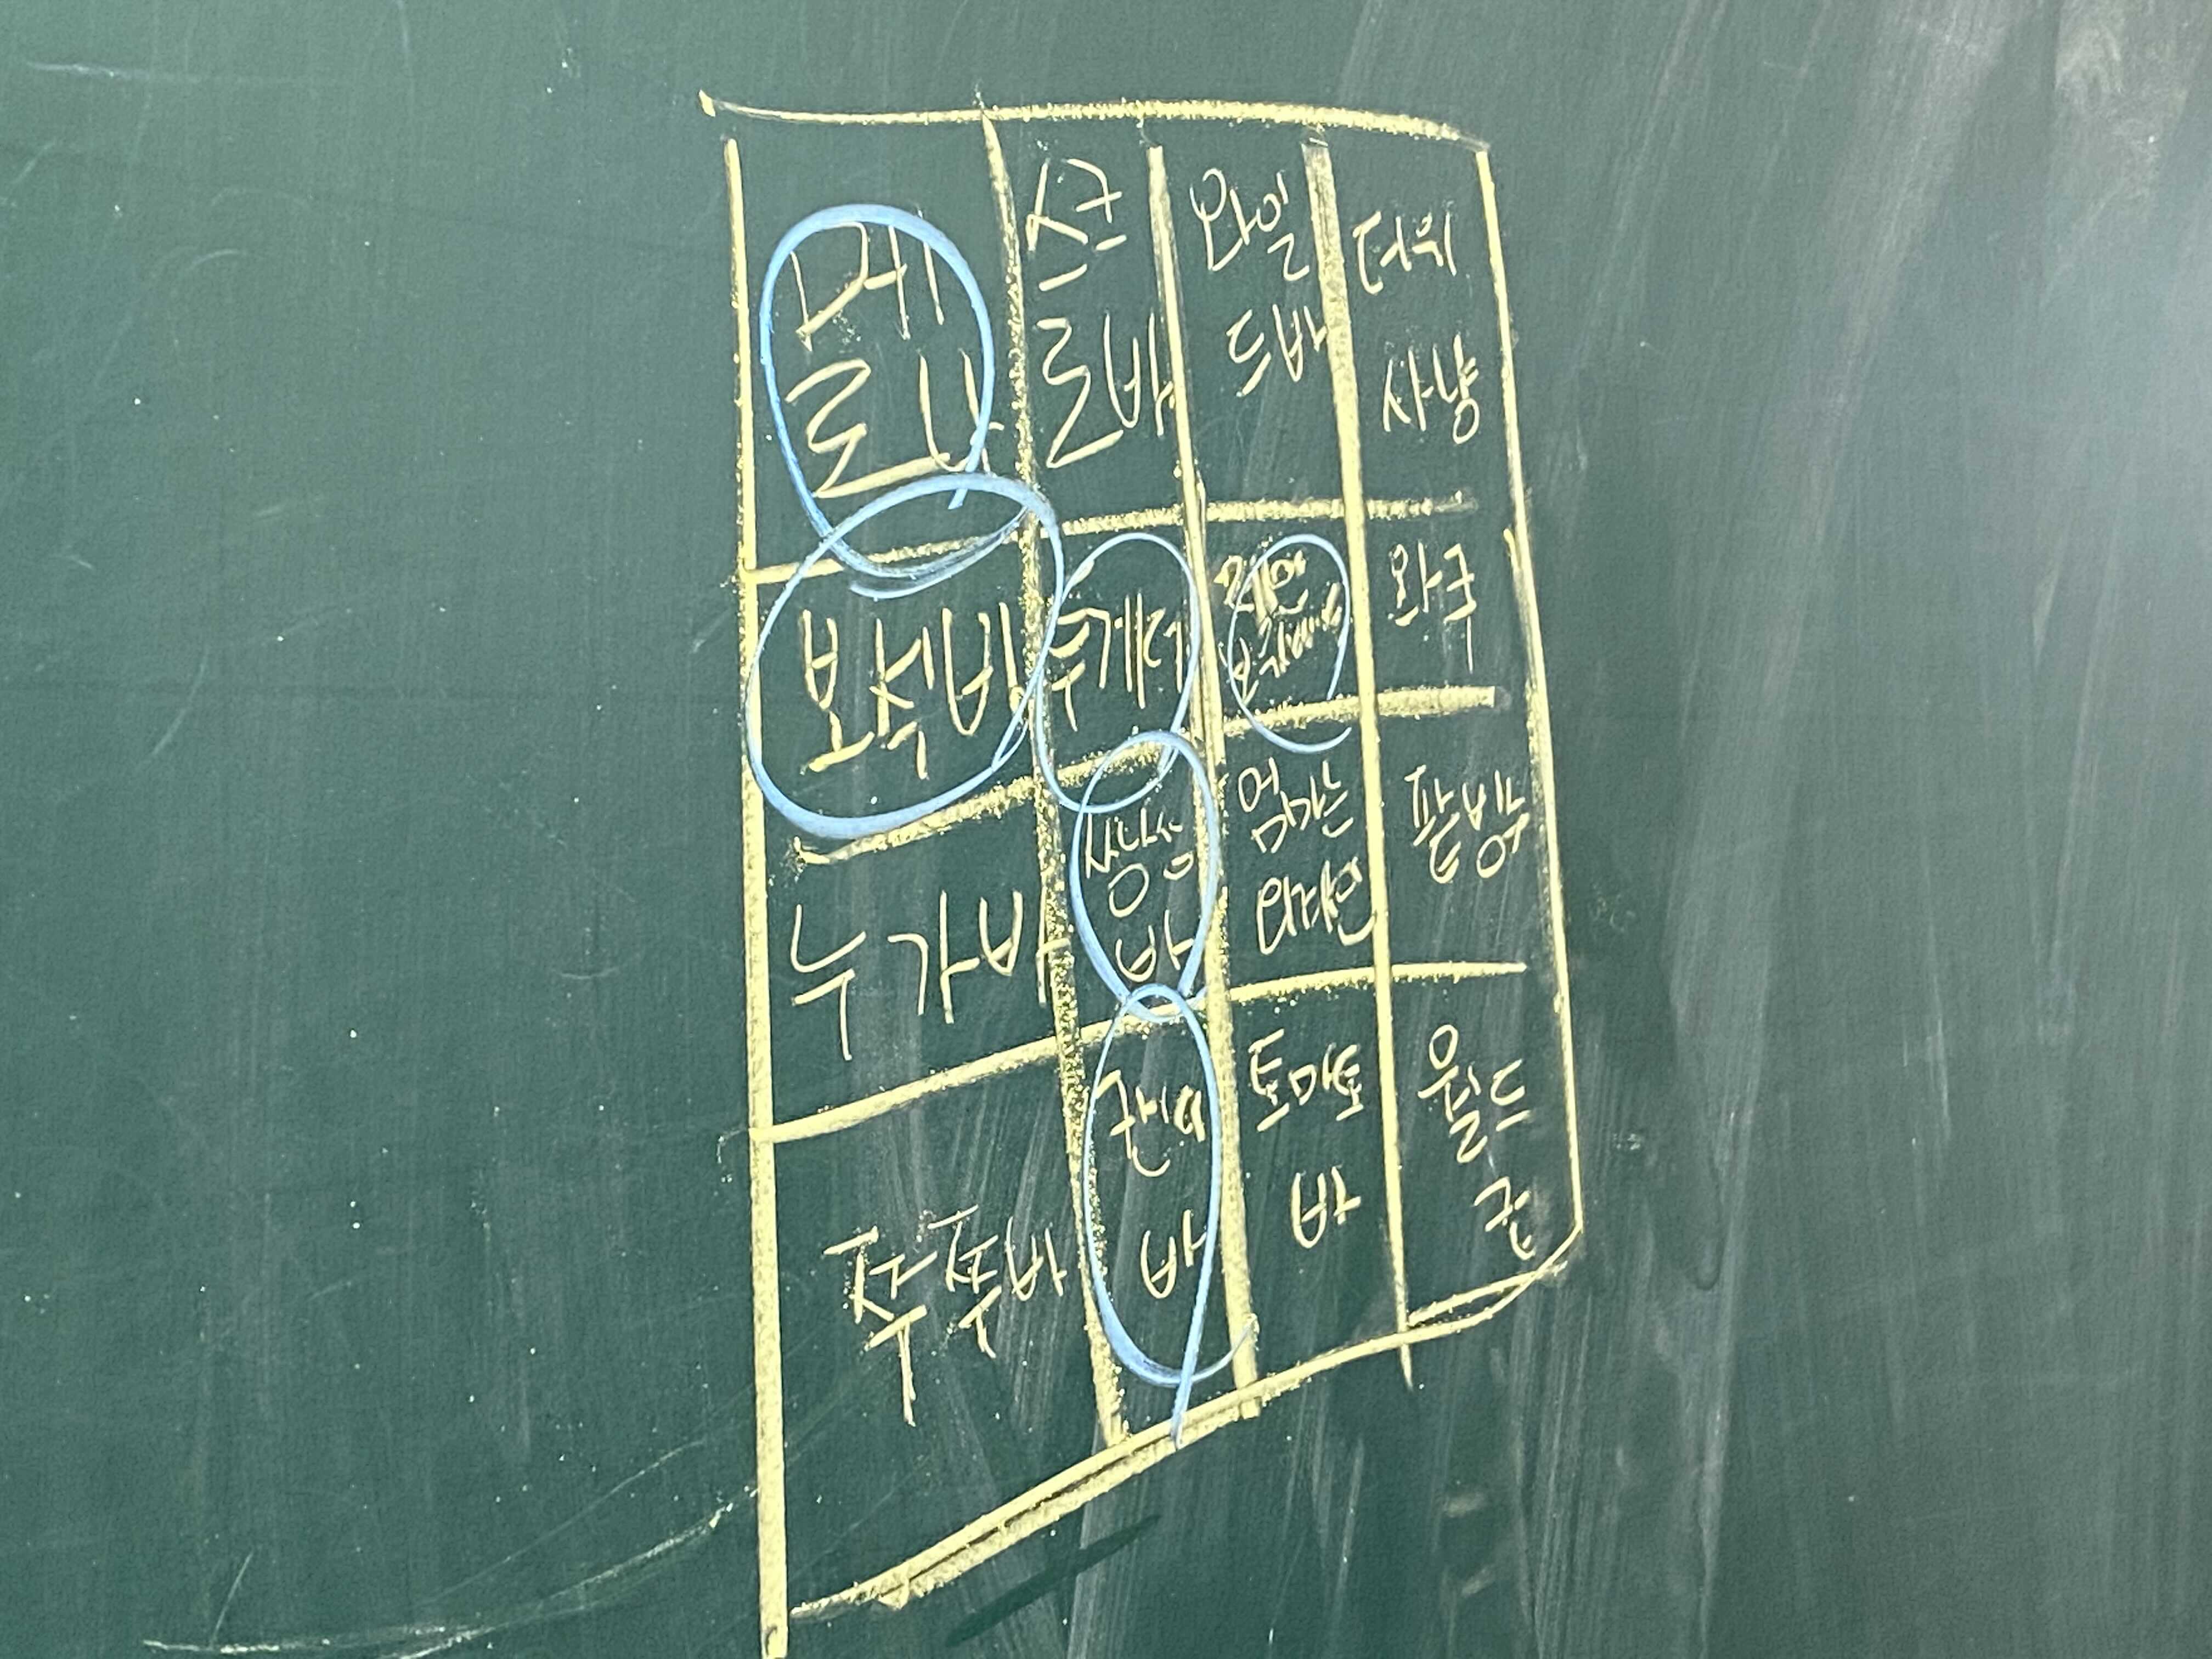 메
로나
스크
로바
와일
드바
더위
사냥
보석바
투게더
레몬
누가바
쌍쌍
바
엄마는
외계인
팥빙수
쭈쭈바
바
토마토
바
월드
콘